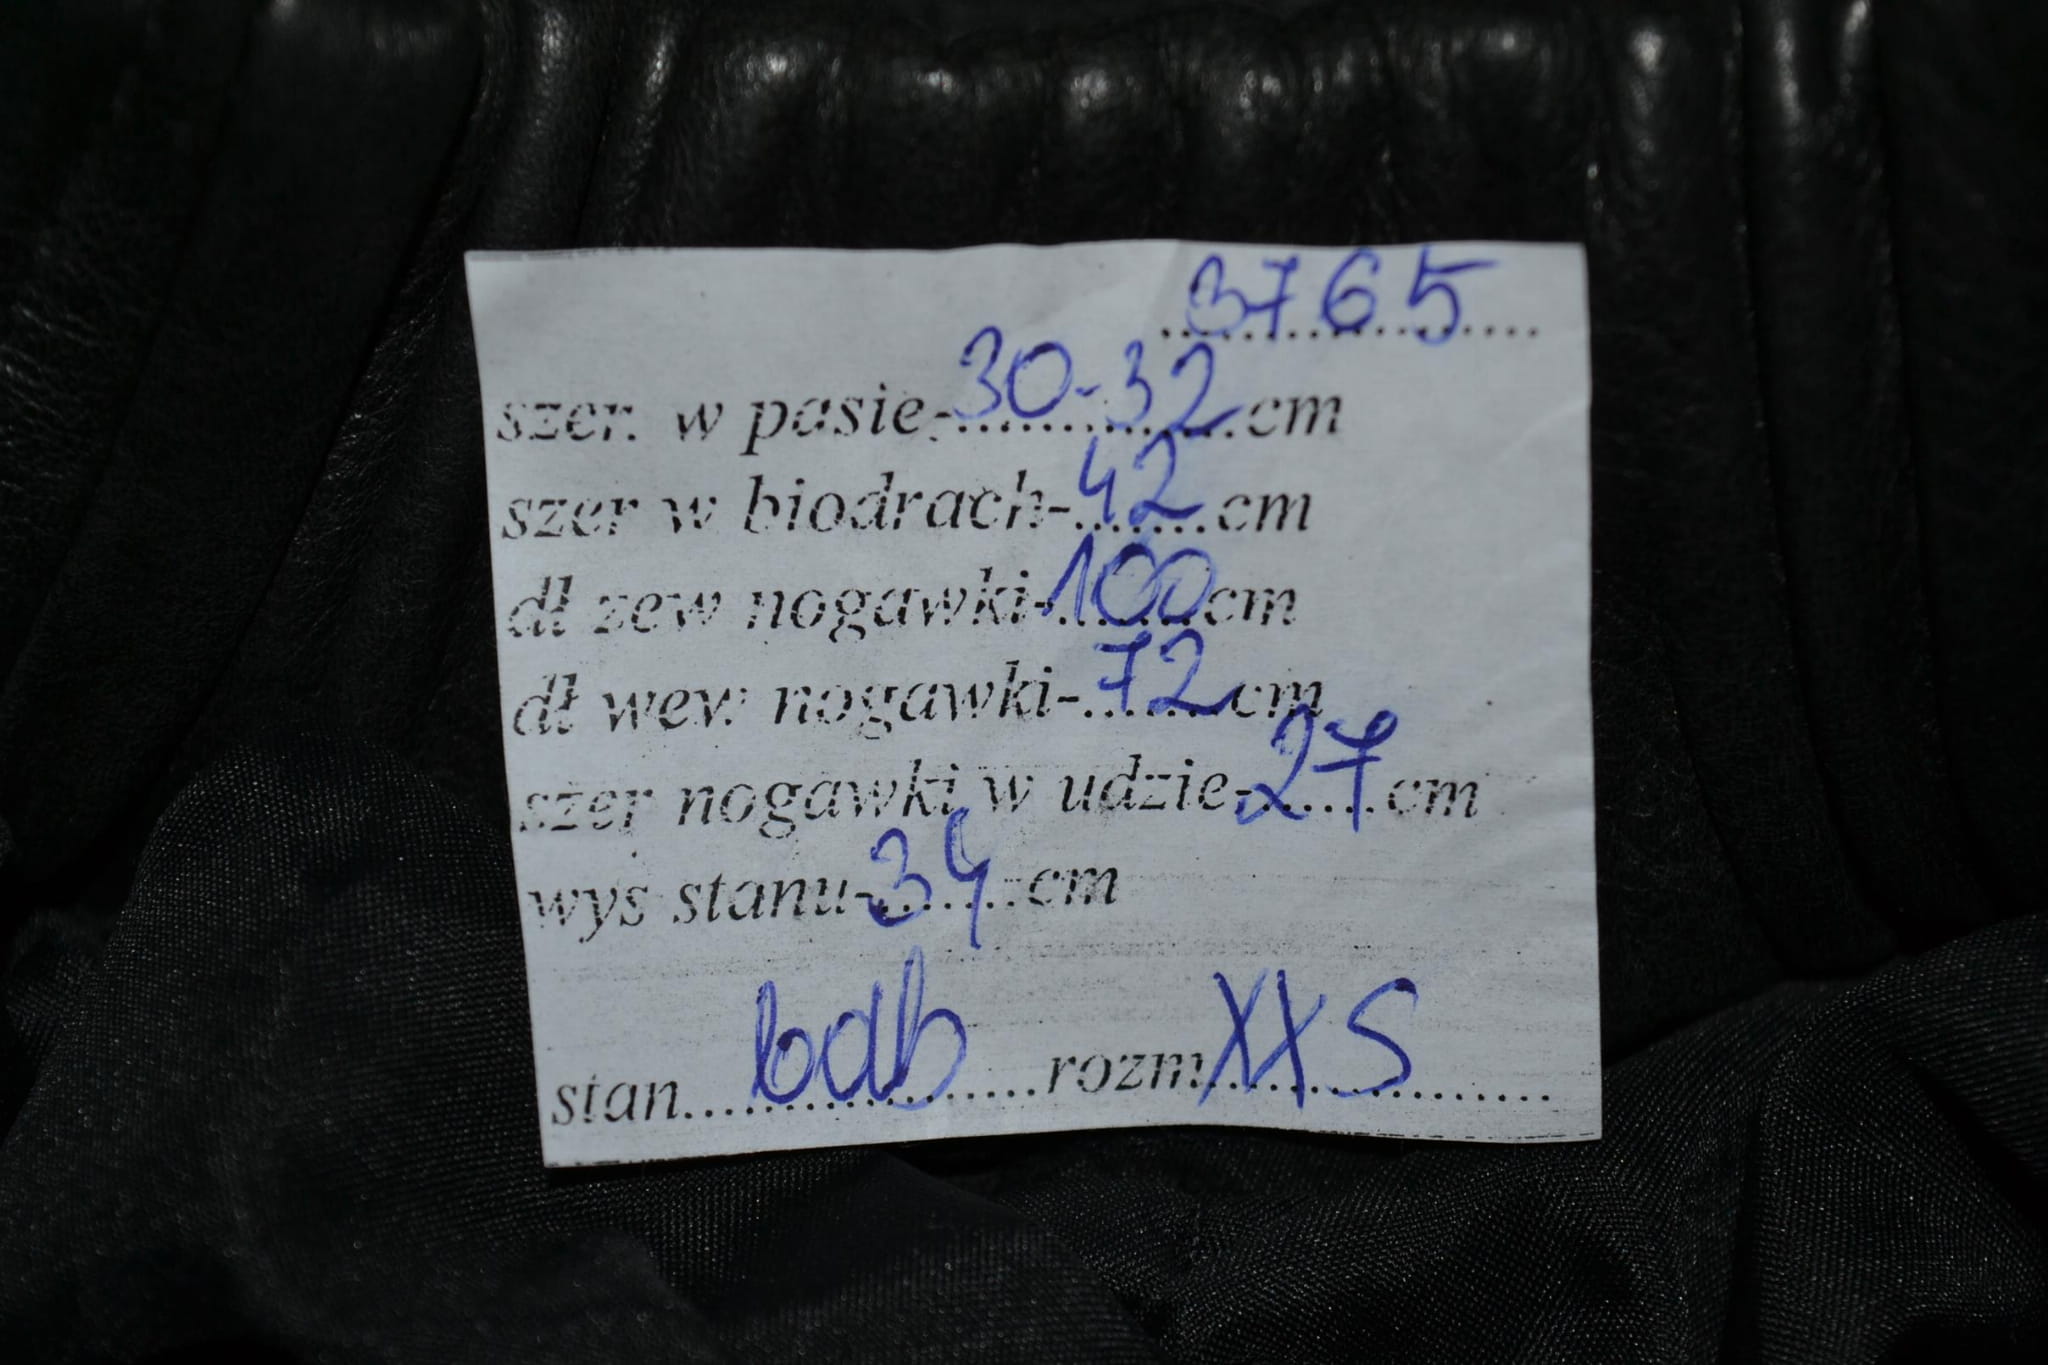 3765
szer. w pasie-30-32cm
szer w biodrach-42cm
dł zew nogawki-100cm
dł wew. nogawki-72cm
szer nogawki w udzie-27cm
wys stanu-34cm
stan bdb rozm XXS